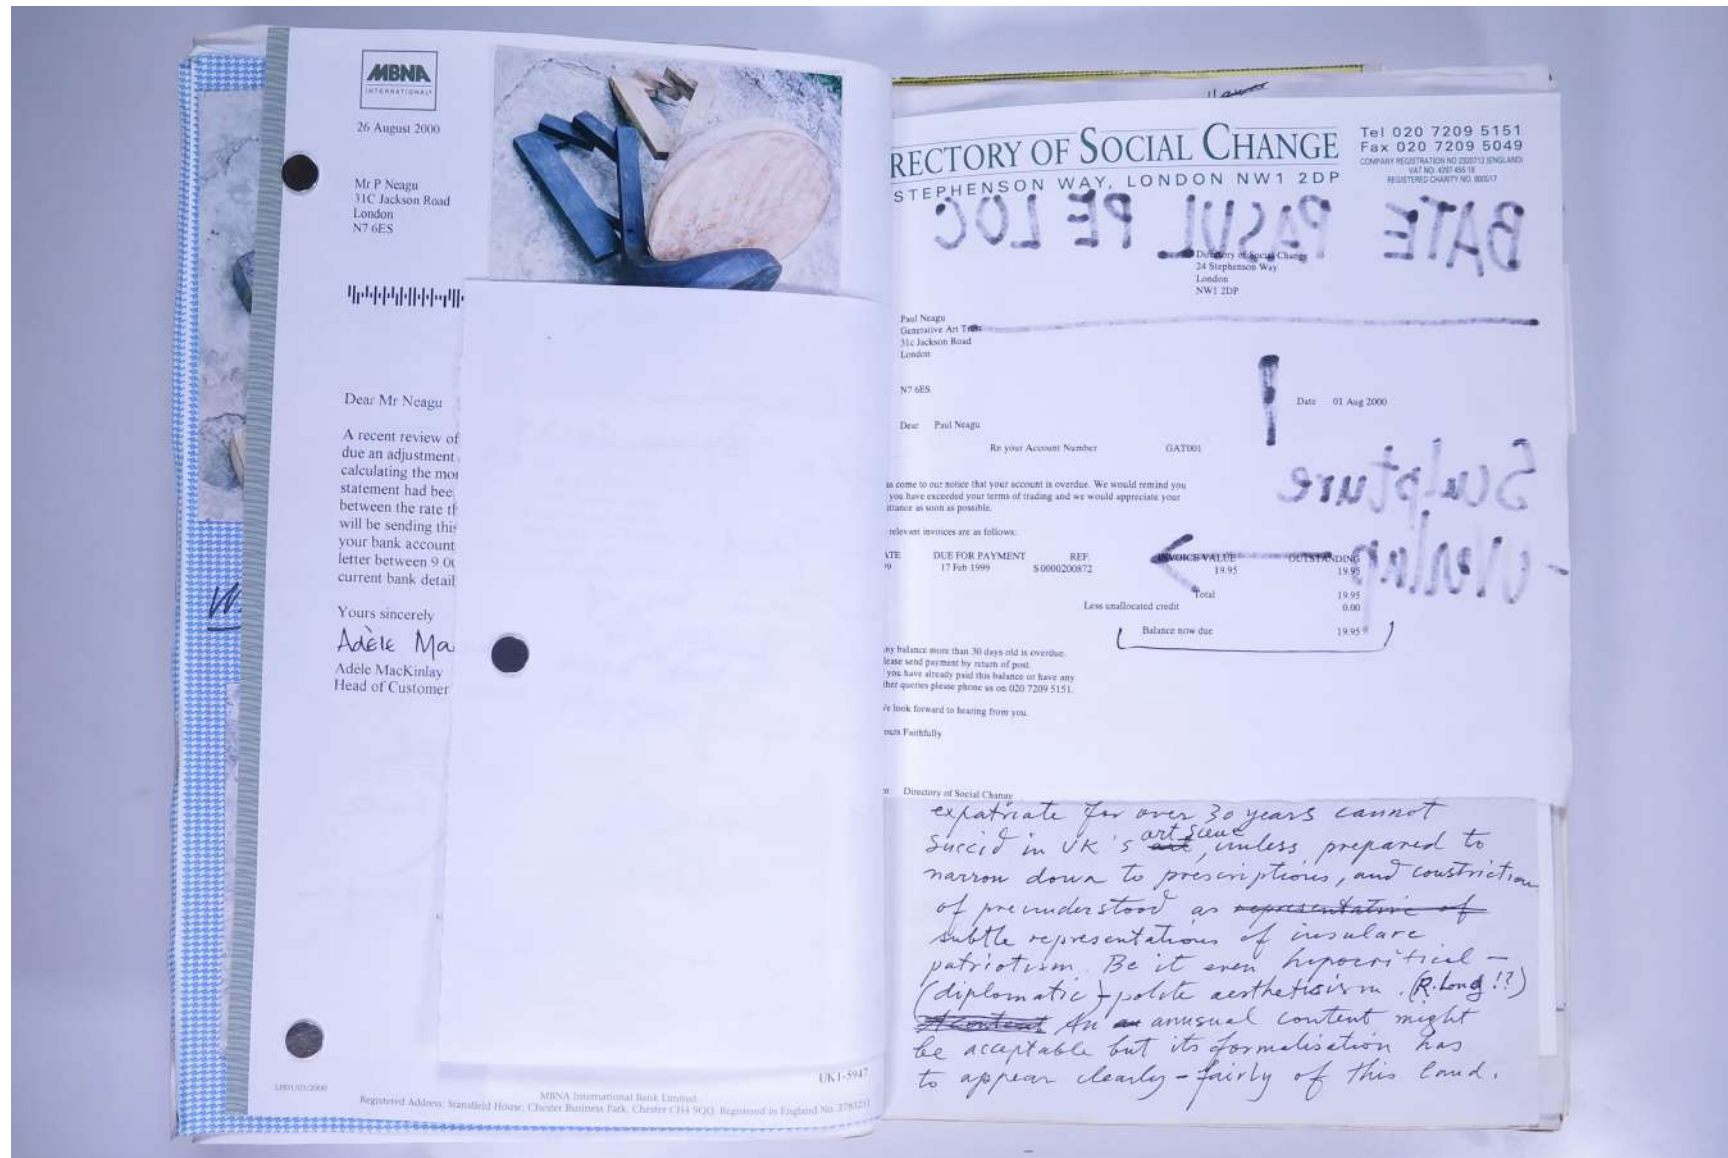 MBNA
INTERNATIONAL®
26 August 2000
Mr P Neagu
31C Jackson Road
London
N7 6ES
Dear Mr Neagu
A recent review of
due an adjustment
calculating the mo
statement had bee
between the rate th
will be sending this
your bank account
letter between 9
current bank detail
Yours sincerely
Adèle Ma
Adèle MacKinlay
Head of Customer
UK1-5947
MBNA International Bank Limited
Registered Address: Stansfield House, Chester Business Park, Chester CH4 9QQ. Registered in England No. 2783251
RECTORY OF SOCIAL CHANGE
STEPHENSON WAY, LONDON NW1 2DP
Tel 020 7209 5151
Fax 020 7209 5049
COMPANY REGISTRATION NO 2320712 (ENGLAND)
VAT NO. 4297 455 18
REGISTERED CHARITY NO. 800517
BATE PASUL PE LOC
Directory of Social Change
24 Stephenson Way
London
NW1 2DP
Paul Neagu
Generative Art Trust
31c Jackson Road
London
N7 6ES
Date 01 Aug 2000
Dear Paul Neagu
Re your Account Number GAT001
Sculpture
- overlap
as come to our notice that your account is overdue. We would remind you
you have exceeded your terms of trading and we would appreciate your
ittance as soon as possible.
relevant invoices are as follows:
ATE DUE FOR PAYMENT REF. INVOICE VALUE OUTSTANDING
17 Feb 1999 S0000200872 19.95 19.95
Total 19.95
Less unallocated credit 0.00
Balance now due 19.95
ny balance more than 30 days old is overdue.
lease send payment by return of post.
you have already paid this balance or have any
her queries please phone us on 020 7209 5151.
e look forward to hearing from you.
ours Faithfully
Directory of Social Change
expatriate for over 30 years cannot
succid in UK's art scene, unless prepared to
narrow down to prescriptions, and constriction
of preunderstood as representative of
subtle representations of insulare
patriotism. Be it even hypocritical -
(diplomatic) - polite aesthetisism. (R. Long !?)
An unusual content might
be acceptable but its formalisation has
to appear clearly - fairly of this land.